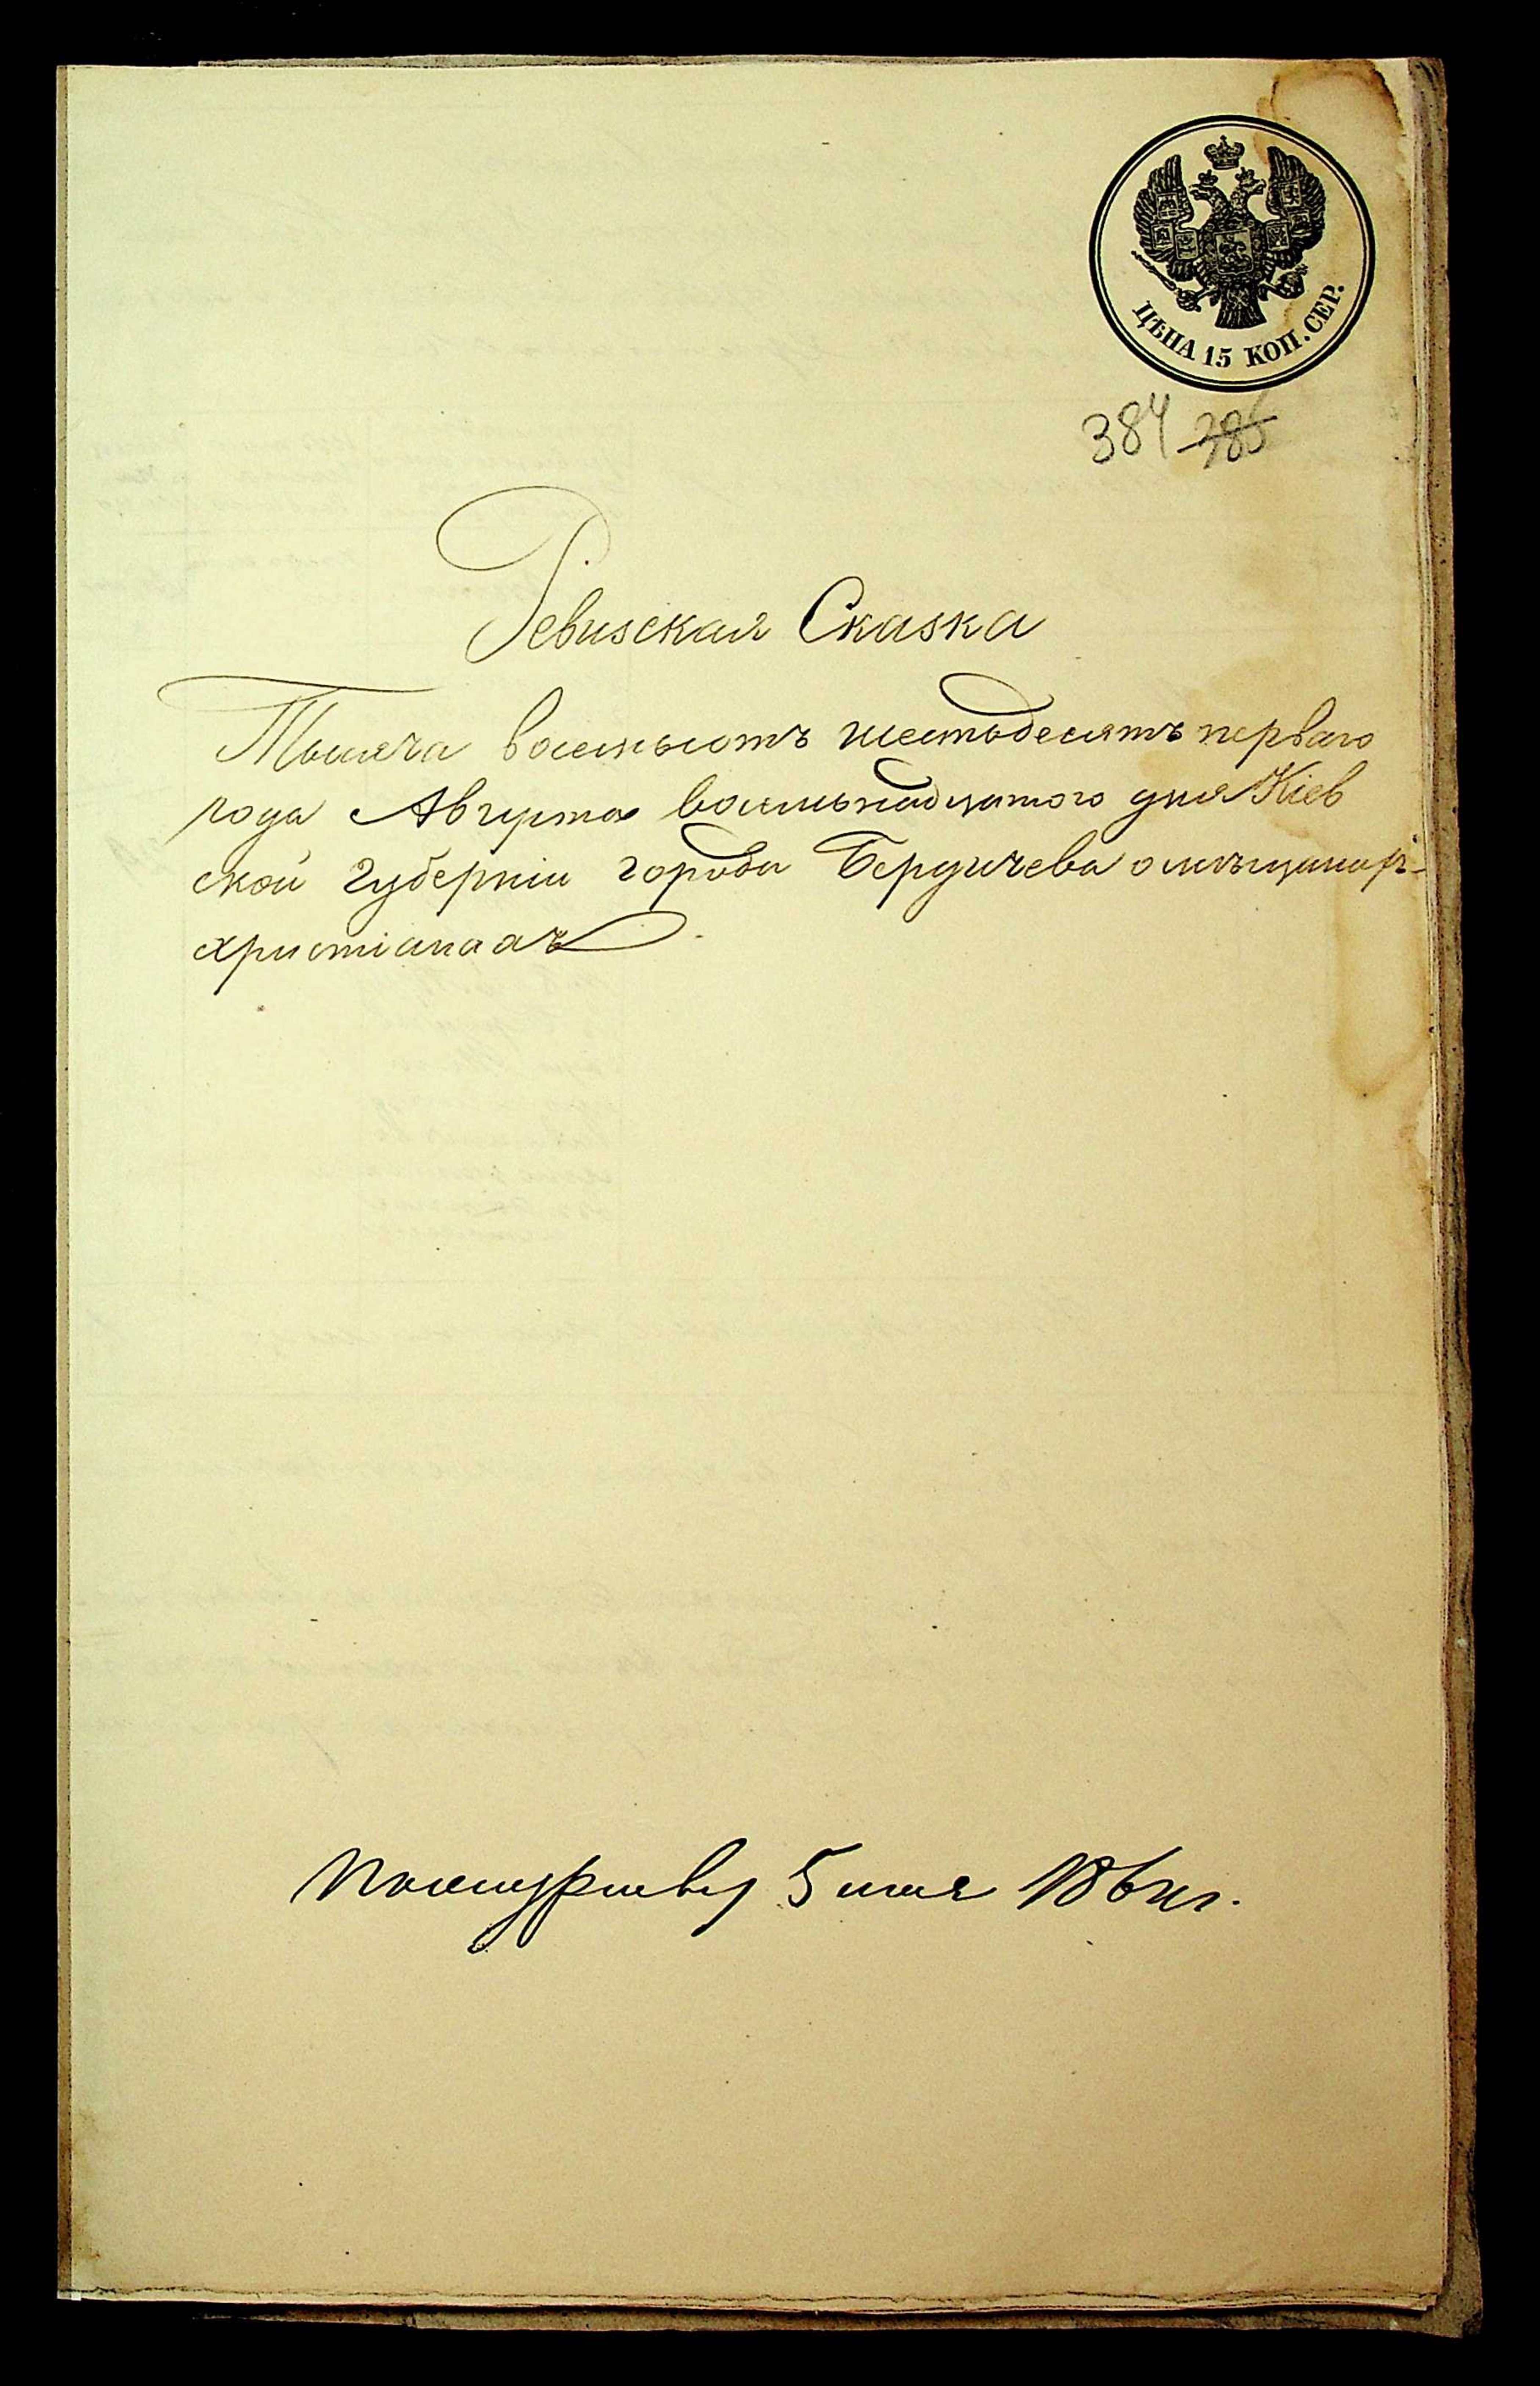 ЦѢНА 15 КОП. СЕР.
384 385
Ревизская Сказка
Тысяча восемьсотъ шестьдесятъ перваго
года Августа восемьнадцатого дня Кіев
ской Губерніи города Бердичева о мѣщанахъ-
христіанахъ.
5 мая